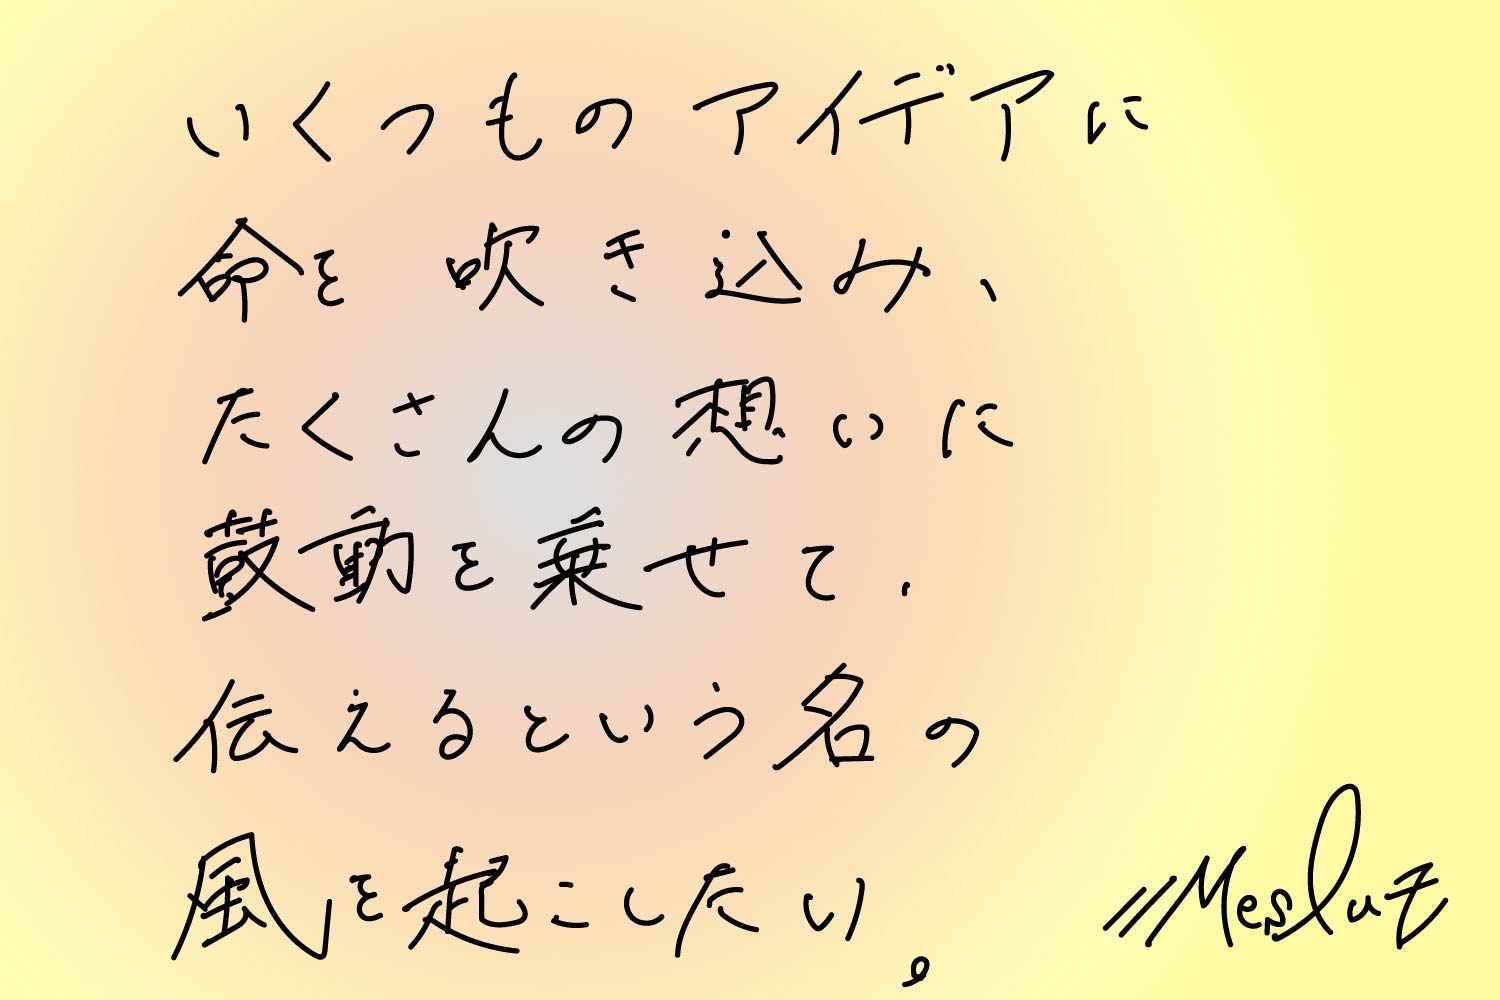 いくつものアイデアに
命を吹き込み、
たくさんの想いに
鼓動を乗せて、
伝えるという名の
風を起こしたい。
Mesluz